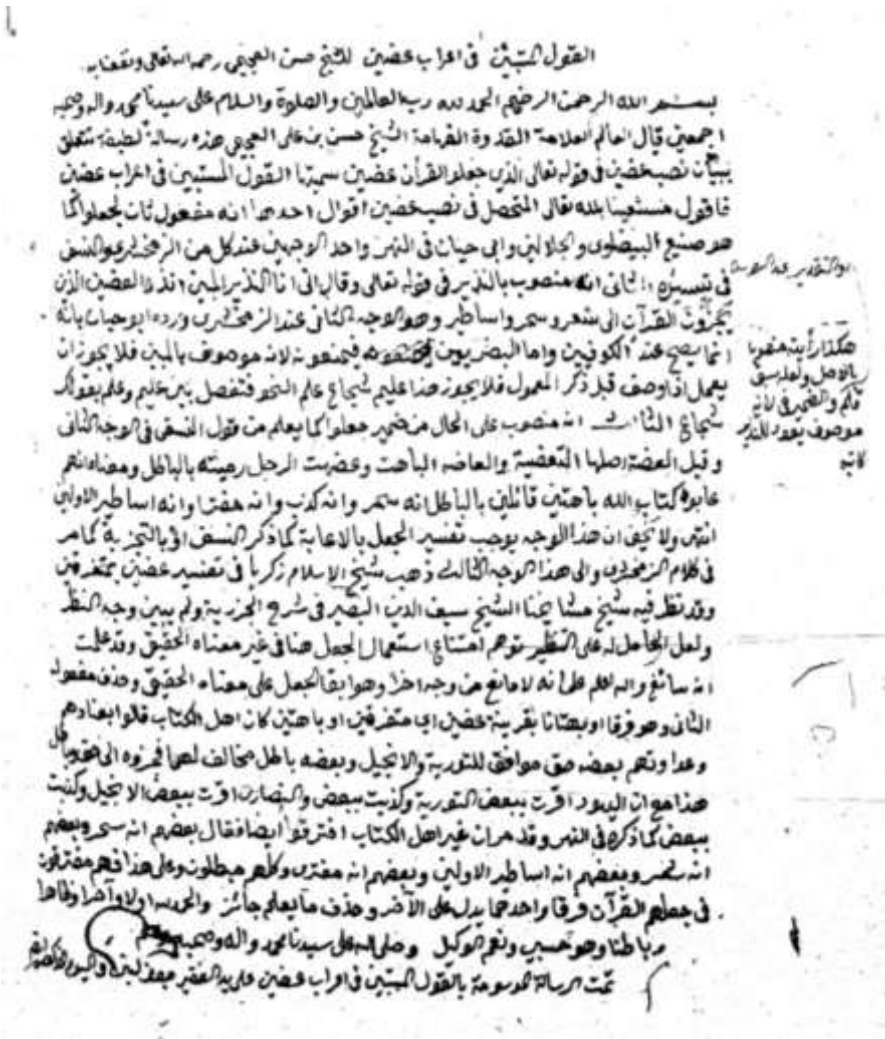 القول المتين في اعراب عضين للشيخ حسن العجيمي رحمه الله تعالى ونفعنا به
بسم الله الرحمن الرحيم الحمد لله رب العالمين والصلوة والسلام على سيدنا محمد واله وصحبه
اجمعين قال العالم العلامة القدوة الفهامة الشيخ حسن بن على العجيمي هذه رسالة لطيفة تتعلق
ببيان نصب عضين في قوله تعالى الذين جعلوا القرآن عضين سميتها القول المستبين في اعراب عضين
فاقول مستعينا بالله تعالى المتحصل في نصب عضين اقوال احدها انه مفعول ثان لجعلوا كما
هو صنيع البيضاوى والجلالين وابى حيان في النهر واحد الوجهين عند كل من الزمخشرى والنسفى
في تفسيره الثانى انه منصوب بالنذير في قوله تعالى وقل انى انا النذير المبين انذر العضين الذين
يجزؤن القرآن الى شعر وسحر واساطير وهو الوجه الثانى عند الزمخشرى ورده ابو حيان بانه
انما يصح عند الكوفيين واما البصريون فيمنعونه لانه موصوف بالمبين فلا يجوز ان
يعمل اذا وصف قبل ذكر المعمول فلا يجوز هذا عليم شجاع علم النحو فتفصل بين عليم وعلم بقولك
شجاع الثالث انه منصوب على الحال من ضمير جعلوا كما يعلم من قول النسفى في الوجه الثانى
و قيل العضة اصلها التعضية والعاضه الباهت وعضهت الرجل رميته بالباطل ومعناه انهم
عابوا كتاب الله باهتين قائلين بالباطل انه سحر وانه كذب وانه مفترا وانه اساطير الاولين
انتهى ولا يخفى ان هذا الوجه يوجب تفسير الجعل بالاعابة كما ذكر النسفى او بالتجزية كما مر
في كلام الزمخشرى والى هذا الوجه الثالث ذهب شيخ الاسلام زكريا في تفسير عضين بمتفرقين
وقد نظر فيه شيخ مشايخنا الشيخ سيف الدين البصير في شرح الجزرية ولم يبين وجه النظر
ولعل الحامل له على التنظير توهم امتناع استعمال الجعل هنا في غير معناه الحقيقى وقد علمت
انه سائغ والله اعلم على انه لا مانع من وجه اخر وهو ابقا الجعل على معناه الحقيقى وحذف مفعوله
الثانى وهو فرقا او بهتانا بقرينة عضين اى متفرقين او باهتين كان اهل الكتاب قالوا بعنادهم
وعداوتهم بعضه حق موافق للتورية والانجيل وبعضه باطل مخالف لهما فجزوه الى حق وباطل
هذا مع ان اليهود اقرت ببعض التورية وكذبت ببعض والنصارى اقرت ببعض الانجيل وكذبت
ببعض كما ذكره في النهر وقد مر ان غير اهل الكتاب افترقوا ايضا فقال بعضهم انه سحر وبعضهم
انه شعر وبعضهم انه اساطير الاولين وبعضهم انه مفترى وكلهم مبطلون وعلى هذا فهم مفترقون
في جعلهم القرآن فرقا واحدهما يدل على الآخر وحذف ما يعلم جائز والحمد لله اولا وآخرا وظاهرا
وباطنا وهو حسبى ونعم الوكيل وصلى الله على سيدنا محمد واله وصحبه وسلم
تمت الرسالة الموسومة بالقول المبين في اعراب عضين على يد الفقير
هكذا رأيته منصوبا
بالاصل ولعله سبق
قلم والضمير في لانه
موصوف يعود للنذير
كاتبه